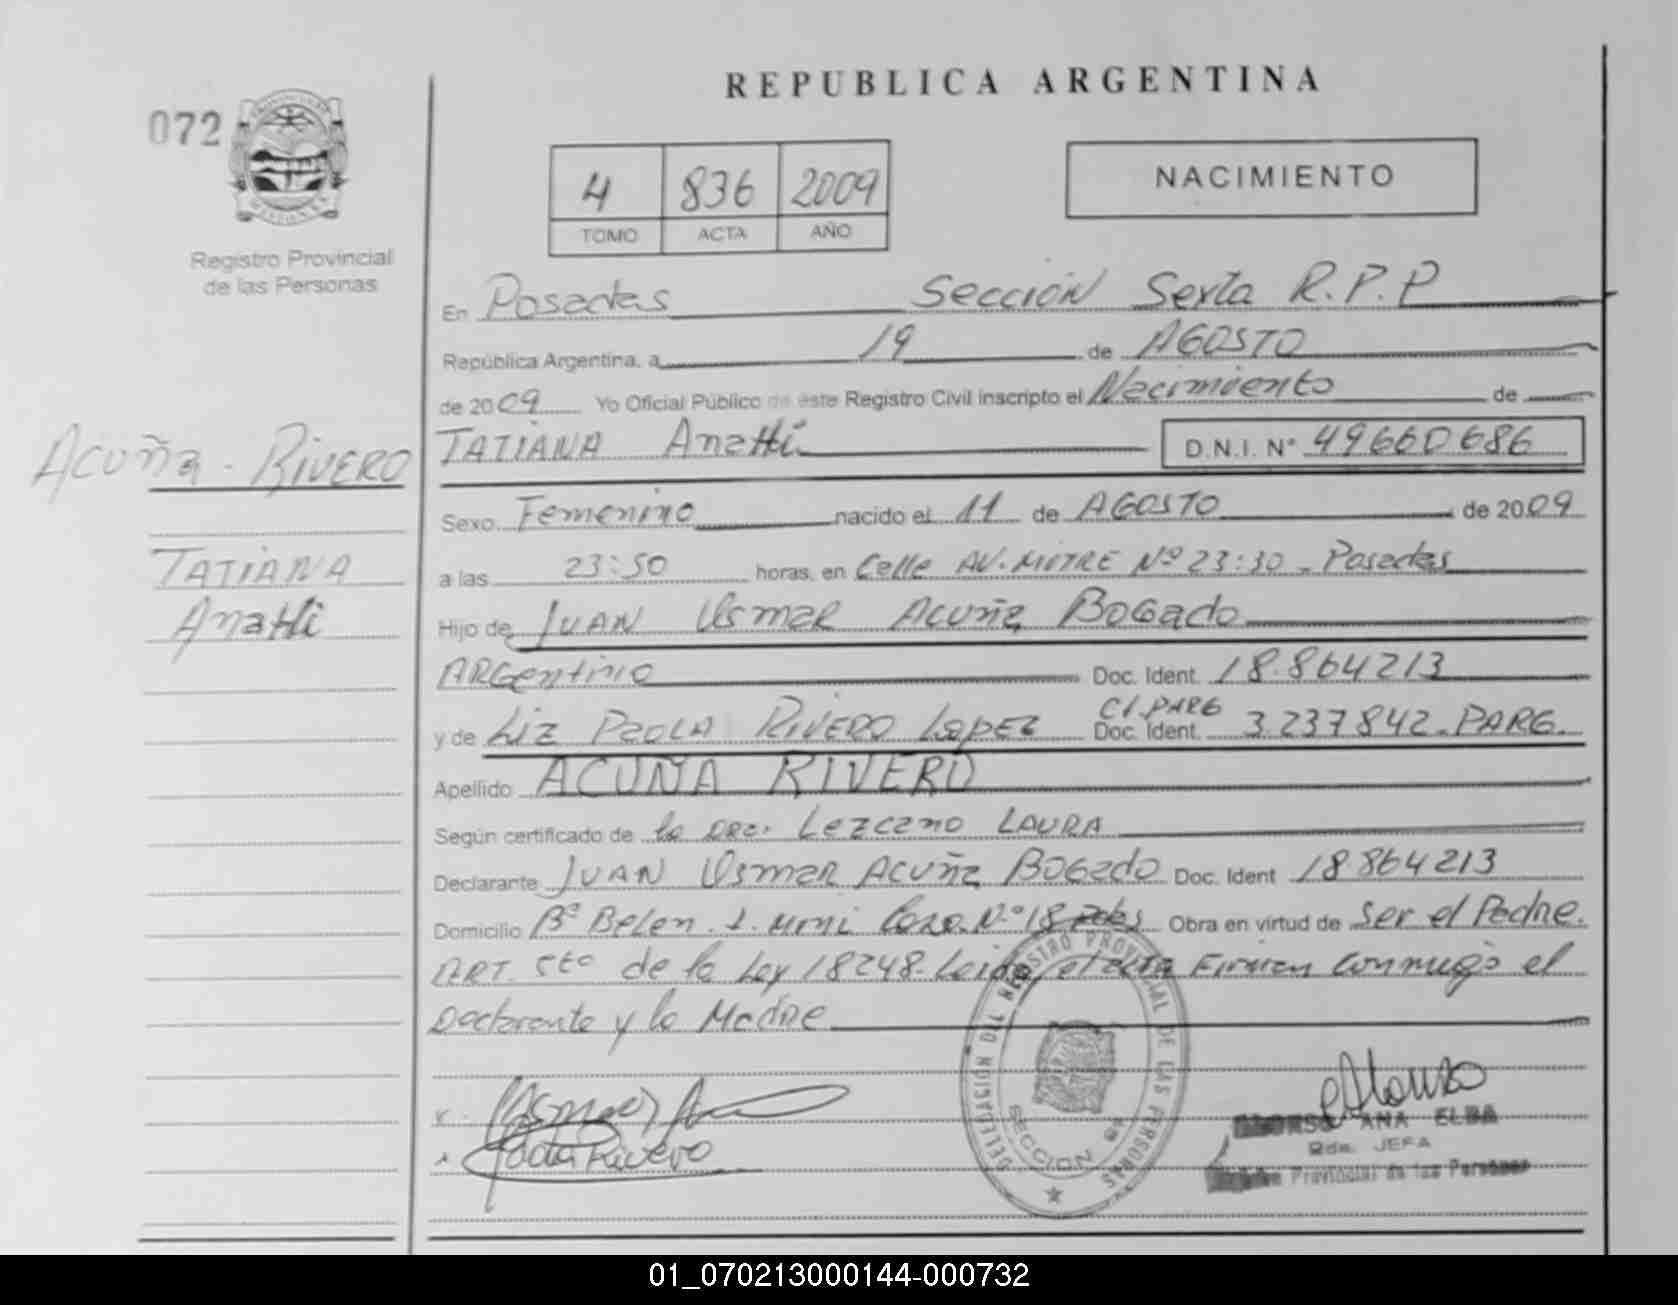 REPUBLICA ARGENTINA
072
4 836 2009
TOMO ACTA AÑO
NACIMIENTO
Registro Provincial
de las Personas
En Posadas Sección Sexta R.P.P
República Argentina, a 19 de AGOSTO
de 2009 Yo Oficial Público de este Registro Civil inscripto el Nacimiento de
Acuña - RIVERO
TATIANA Anahi D.N.I. Nº 49660686
Sexo Femenino nacido el 11 de AGOSTO de 2009
TATIANA
Anahi
a las 23:50 horas, en Calle AV. MITRE Nº 23:30 - Posadas
Hijo de JUAN Usmar Acuña BOGado
ARGentino Doc. Ident. 18.864213
CI.PARG
y de Liz Paola RIVERO Lopez Doc. Ident. 3.237842. PARG.
Apellido ACUÑA RIVERO
Según certificado de la Dra. Lezcano LAURA
Declarante JUAN Usmar Acuña BOGado Doc. Ident 18864213
Domicilio Bº Belen Nº 18 Pdas Obra en virtud de ser el Padre.
ART. 5to de la Ley 18248. Leida el acta Firman conmigo el
Declarante y la Madre
Paola Rivero
DELEGACION DEL REGISTRO PROVINCIAL DE LAS PERSONAS
SECCION 6ª
Alonso
ALONSO ANA ELBA
JEFA
Registro Provincial de las Personas
01_070213000144-000732